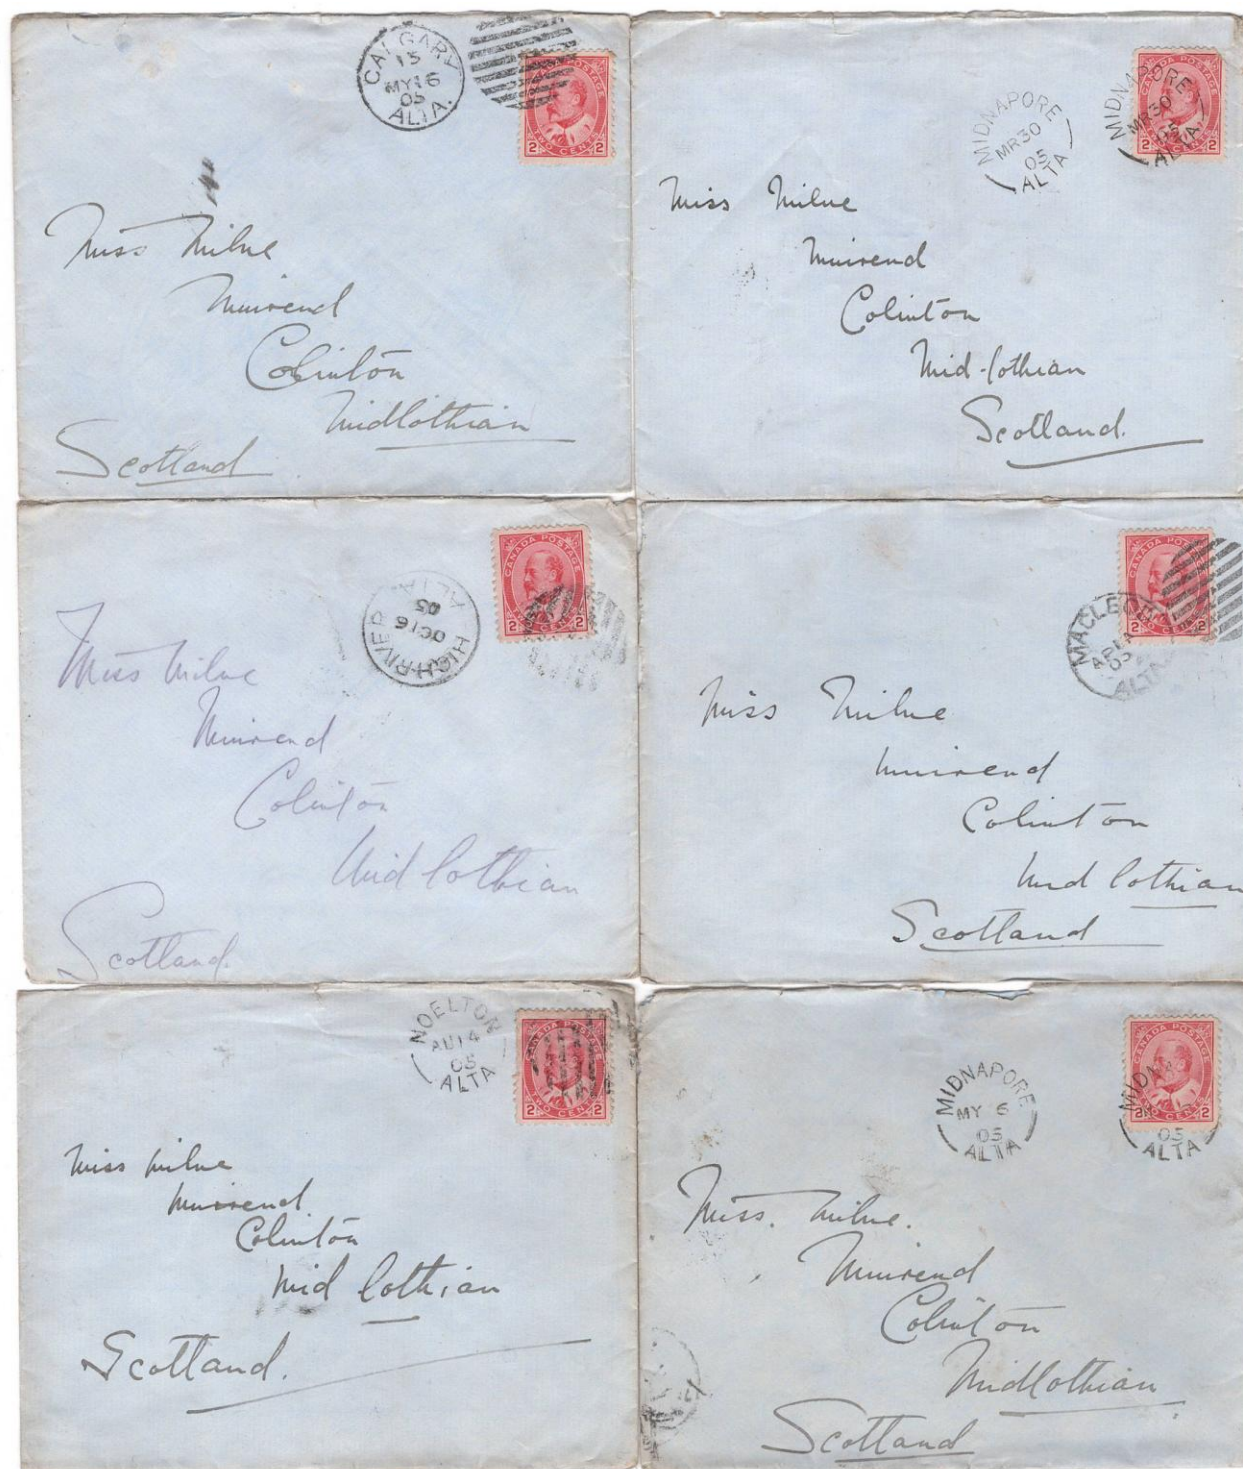 CALGARY
15
MY 16
05
ALTA.
CANADA POSTAGE
2 TWO CENTS 2
Miss Milne
Muirend
Colinton
Midlothian
Scotland
MIDNAPORE
MR 30
05
ALTA
MIDNAPORE
MR 30
05
ALTA
2 2
Miss Milne
Muirend
Colinton
Mid-lothian
Scotland.
HIGH RIVER
OC 16
05
ALTA
CANADA POSTAGE
2 CENTS 2
Miss Milne
Muirend
Colinton
Mid lothian
Scotland.
CANADA POSTAGE
2 2
MACLEOD
AP 14
05
ALTA
Miss Milne
Muirend
Colinton
Mid lothian
Scotland
NOELTON
AU 14
05
ALTA
CANADA POSTAGE
2 TWO CENTS 2
Miss Milne
Muirend.
Colinton
Mid lothian
Scotland.
MIDNAPORE
MY 6
05
ALTA
CANADA POSTAGE
2 2
MIDNAPORE
05
ALTA
Miss. Milne.
Muirend
Colinton
Midlothian
Scotland